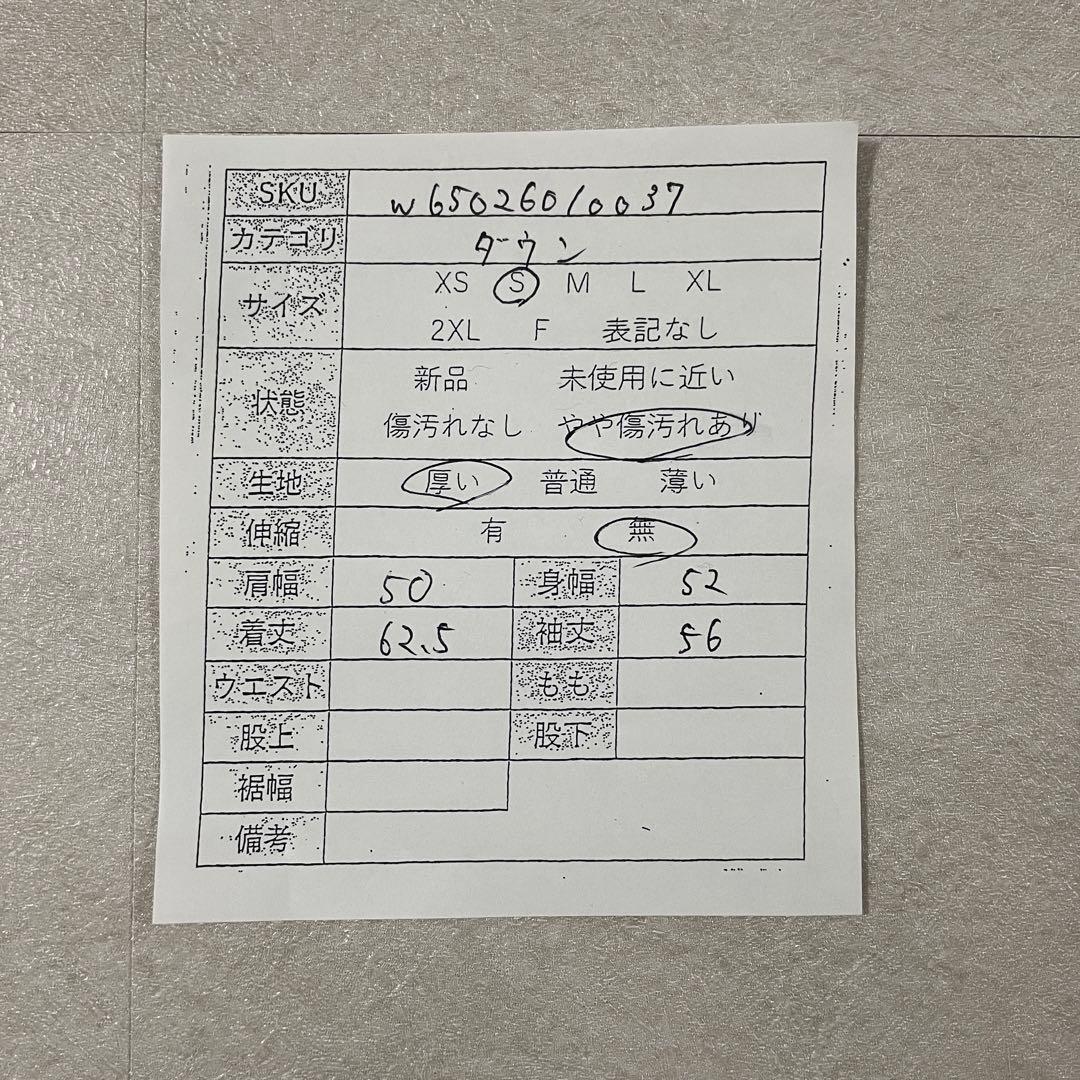 SKU w65026010037
カテゴリ ダウン
サイズ XS S M L XL
2XL F 表記なし
状態 新品 未使用に近い
傷汚れなし やや傷汚れあり
生地 厚い 普通 薄い
伸縮 有 無
肩幅 50 身幅 52
着丈 62.5 袖丈 56
ウエスト もも
股上 股下
裾幅
備考